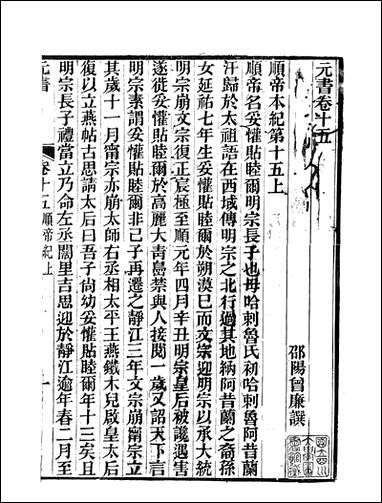 元書卷十五
邵陽曾廉譔
順帝本紀第十五上
順帝名妥懽貼睦爾明宗長子也母哈剌魯氏初哈剌魯阿昔蘭
汗歸於太祖語在西域傳明宗之北行過其地納阿昔蘭之裔孫
女延祐七年生妥懽貼睦爾於朔漠巳而文宗迎明宗以承大統
明宗崩文宗復正宸極至順元年四月辛丑明宗皇后被讒遇害
遂徙妥懽貼睦爾於高麗大青島禁與人接閱一歲又詔天下言
明宗素謂妥懽貼睦爾非己子再遷之靜江三年文宗崩甯宗立
其歲十一月甯宗亦崩太師右丞相太平王燕鐵木兒啟皇太后
復以立燕帖古思請太后曰吾子尚幼妥懽貼睦爾年十三矣且
明宗長子禮當立乃命左丞闊里吉思迎於靜江逾年春二月至
元書
卷十五順帝紀上
一